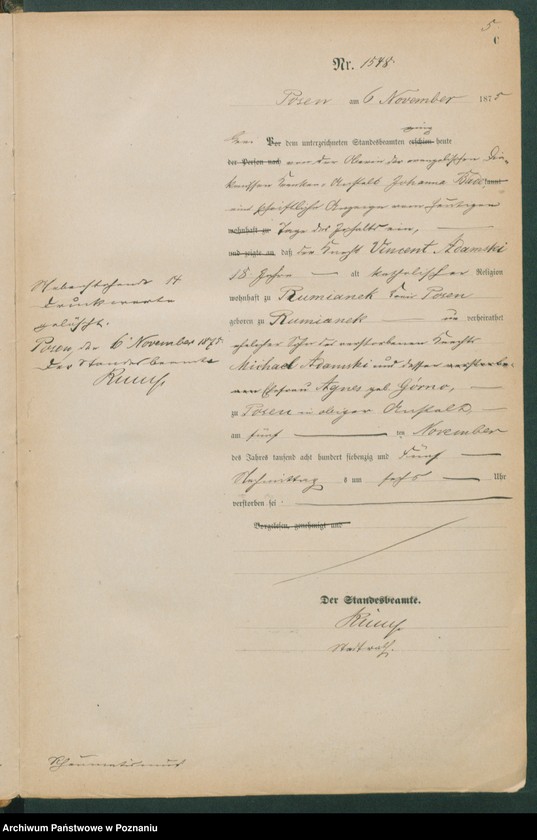 5
C
Nr. 1548.
Posen am 6 November 1875
Bei Vor dem unterzeichneten Standesbeamten erschien heute ging
der Person nach von der Oberin der evangelischen Dia-
konissen Kranken-Anstalt Johanna kannt
eine schriftliche Anzeige vom heutigen
wohnhaft zu Tage des Inhalts ein,
und zeigte an, daß der Knecht Vincent Adamski
18 Jahre alt katholischer Religion
wohnhaft zu Rumianek Kreis Posen
geboren zu Rumianek un verheirathet
ehelicher Sohn des verstorbenen Knechts
Michael Adamski und dessen verstorbe-
nen Ehefrau Agnes geb. Górno,
zu Posen in obiger Anstalt,
am fünf ten November
des Jahres tausend acht hundert siebenzig und fünf
Nachmittag s um sechs Uhr
verstorben sei
Vorgelesen, genehmigt und
Nebenstehende 14
Druckworte
gelöscht.
Posen den 6 November 1875.
Der Standesbeamte
Der Standesbeamte.
Stadtrath.
Rheumatismus
Archiwum Państwowe w Poznaniu